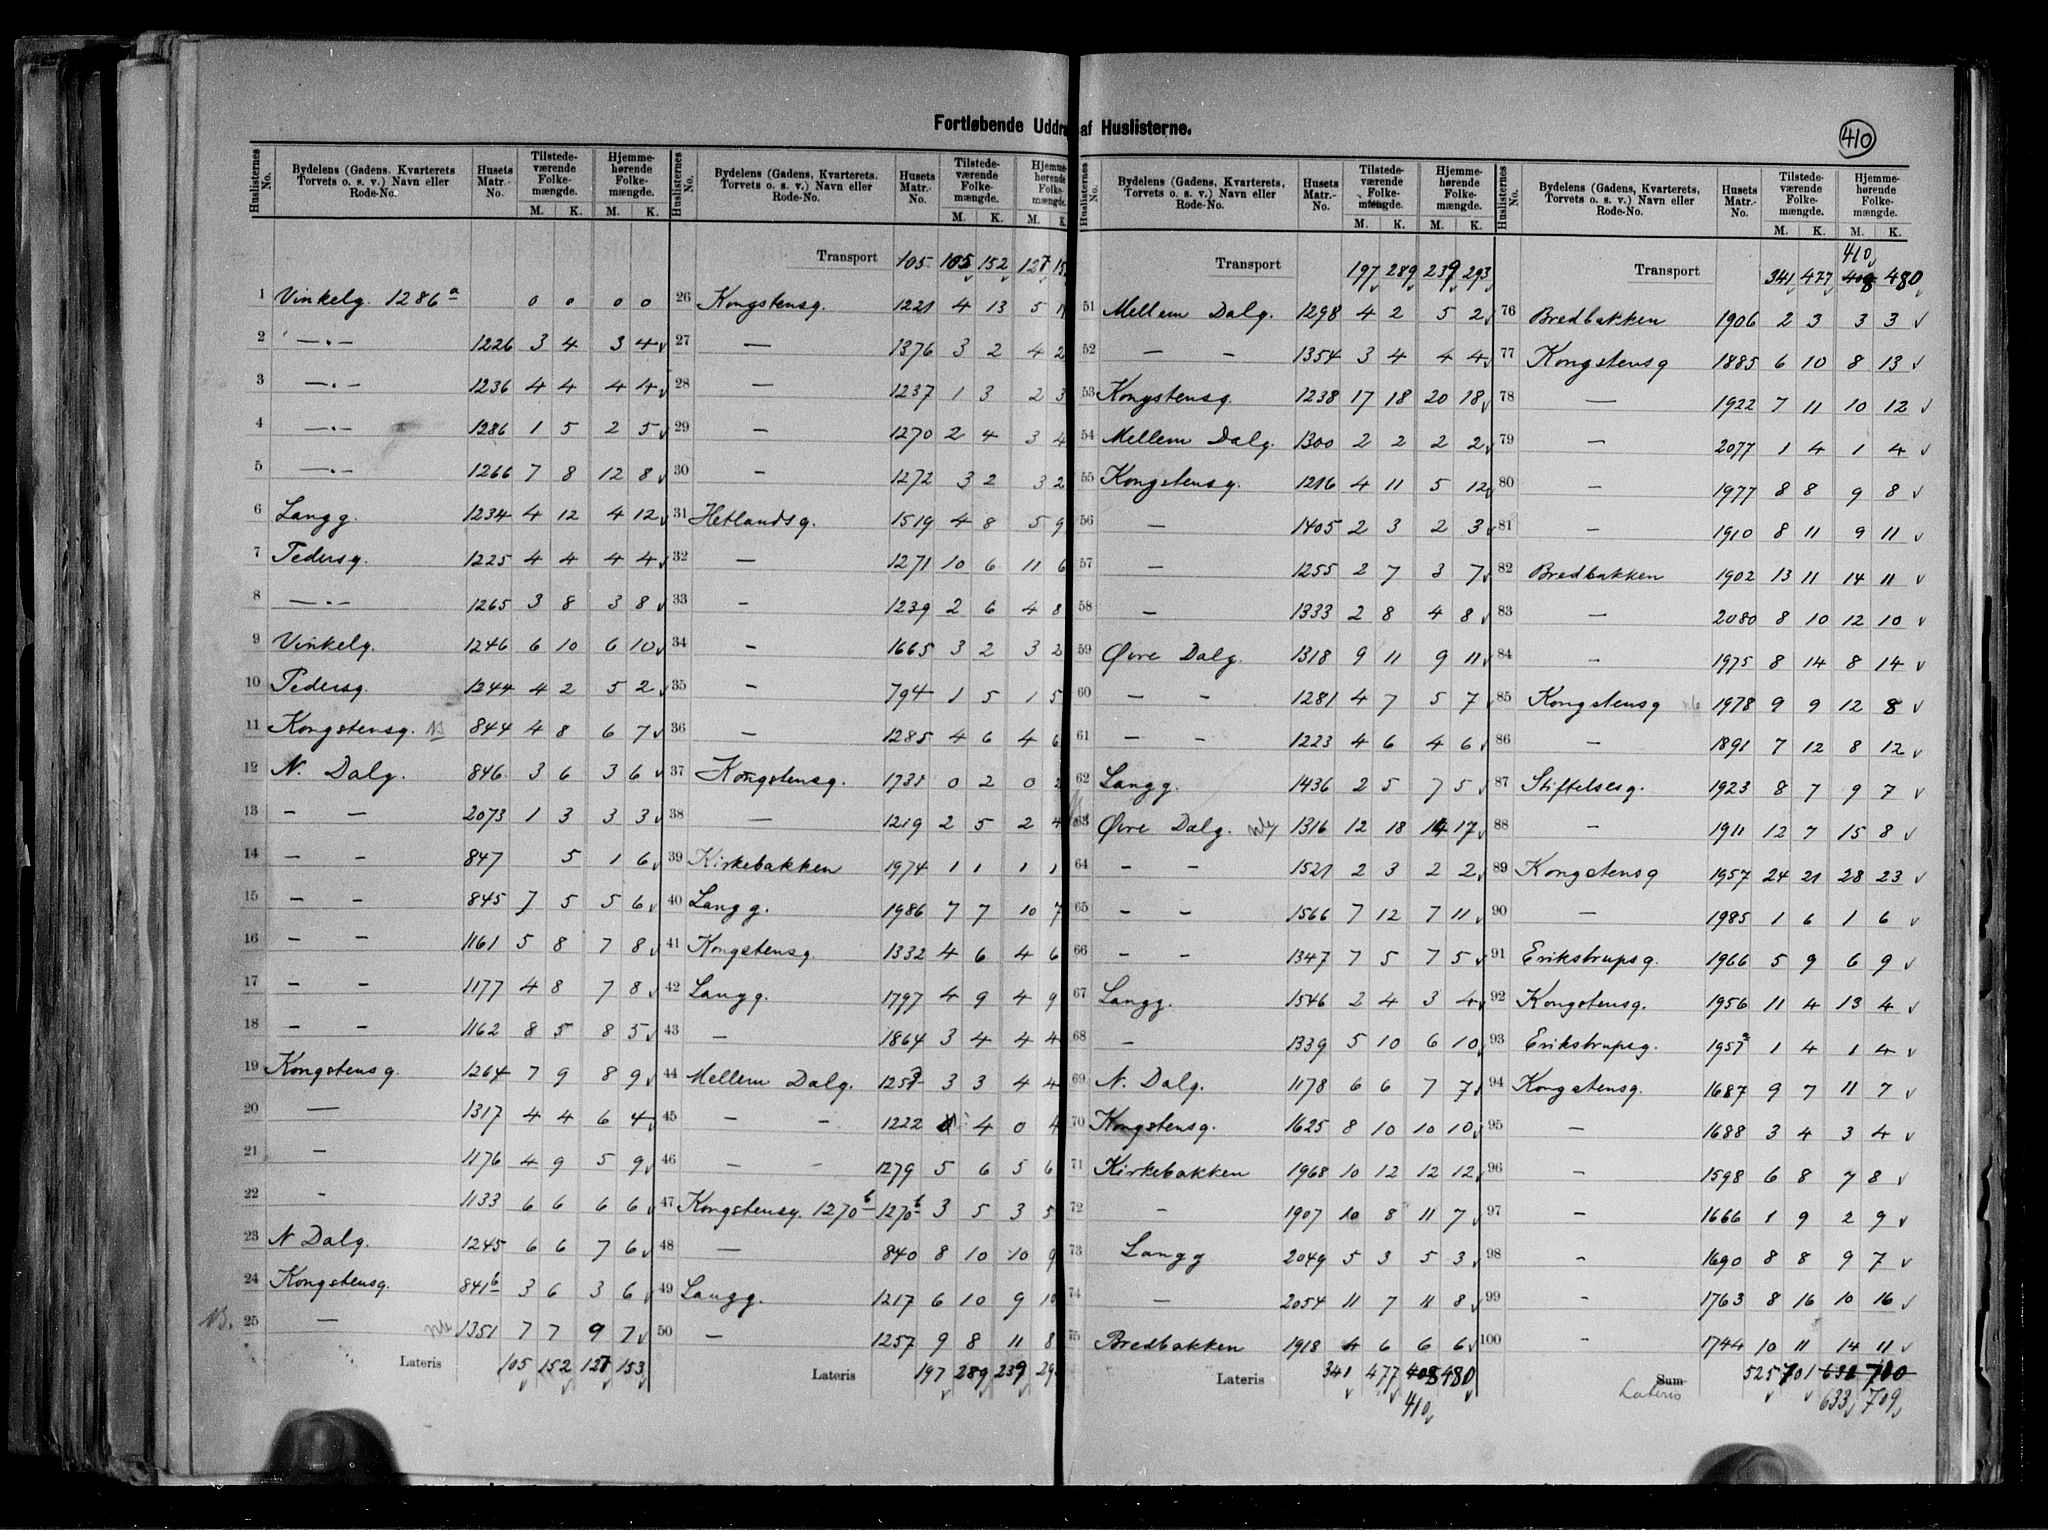 Fortløbende Uddr af Huslisterne.
410
Huslisternes No. Bydelens (Gadens, Kvarterets Torvets o. s. v.) Navn eller Rode-No. Husets Matr.-No. Tilstede-værende Folke-mængde. M. K. Hjemme-hørende Folke-mængde. M. K.
1 Vinkelg. 1286a 0 0 0 0
2 —„— 1226 3 4 3 4
3 —„— 1236 4 4 4 4
4 —„— 1286 1 5 2 5
5 —„— 1266 7 8 12 8
6 Langg. 1234 4 12 4 12
7 Pedersg. 1225 4 4 4 4
8 —„— 1265 3 8 3 8
9 Vinkelg. 1246 6 10 6 10
10 Pedersg. 1244 4 2 5 2
11 Kongstensg. 844 4 8 6 7
12 N. Dalg. 846 3 6 3 6
13 — — 2073 1 3 3 3
14 — — 847 5 1 6
15 — — 845 7 5 5 6
16 — — 1161 5 8 7 8
17 — — 1177 4 8 7 8
18 — — 1162 8 5 8 5
19 Kongstensg. 1264 7 9 8 9
20 — 1317 4 4 6 4
21 — 1176 4 9 5 9
22 — 1133 6 6 6 6
23 N Dalg. 1245 6 6 7 6
24 Kongstensg. 841b 3 6 3 6
25 — 1351 7 7 9 7
Lateris 105 152 127 153
Huslisternes No. Bydelens (Gadens, Kvarterets. Torvets o. s. v.) Navn eller Rode-No. Husets Matr.-No. Tilstede-værende Folke-mængde. M. K. Hjemme-hørende Folke-mængde. M. K.
Transport 105 105 152 127 15
26 Kongstensg. 1221 4 13 5
27 — 1376 3 2 4 2
28 — 1237 1 3 2 3
29 — 1270 2 4 3 4
30 — 1272 3 2 3 2
31 Hetlandsg. 1519 4 8 5 9
32 — 1271 10 6 11 6
33 — 1239 2 6 4 8
34 — 1665 3 2 3 2
35 — 794 1 5 1 5
36 — 1285 4 6 4 6
37 Kongstensg. 1731 0 2 0 2
38 — 1219 2 5 2 4
39 Kirkebakken 1974 1 1 1 1
40 Langg. 1986 7 7 10 7
41 Kongstensg. 1332 4 6 4 6
42 Langg. 1797 4 9 4 9
43 — 1864 3 4 4 4
44 Mellem Dalg. 3 3 4 4
45 — — 1222 4 0 4
46 — — 1279 5 6 5 6
47 Kongstensg. 1270b 1270b 3 5 3 5
48 — 840 8 10 10 9
49 Langg. 1217 6 10 9 10
50 — 1257 9 8 11 8
Lateris 197 289 239 29
Huslisternes No. Bydelens (Gadens, Kvarterets, Torvets o. s. v.) Navn eller Rode-No. Husets Matr.-No. Tilstede-værende Folke-mængde. M. K. Hjemme-hørende Folke-mængde. M. K.
Transport 197 289 239 293
51 Mellem Dalg. 1298 4 2 5 2
52 — — 1354 3 4 4 4
53 Kongstensg. 1238 17 18 20 18
54 Mellem Dalg. 1300 2 2 2 2
55 Kongstensg. 1216 4 11 5 12
56 — 1405 2 3 2 3
57 — 1255 2 7 3 7
58 — 1333 2 8 4 8
59 Øvre Dalg. 1318 9 11 9 11
60 — — 1281 4 7 5 7
61 — — 1223 4 6 4 6
62 Langg. 1436 2 5 7 5
63 Øvre Dalg. 1316 12 18 14 17
64 — — 1521 2 3 2 2
65 — — 1566 7 12 7 11
66 — — 1347 7 5 7 5
67 Langg. 1546 2 4 3 4
68 — 1339 5 10 6 10
69 N. Dalg. 1178 6 6 7 7
70 Kongstensg. 1625 8 10 10 10
71 Kirkebakken 1968 10 12 12 12
72 — 1907 10 8 11 7
73 Langg 2049 5 3 5 3
74 — 2054 11 7 11 8
75 Bredbakken 1918 4 6 6 6
Lateris 341 477 408 480
410
Huslisternes No. Bydelens (Gadens, Kvarterets, Torvets o. s. v.) Navn eller Rode-No. Husets Matr.-No. Tilstede-værende Folke-mængde. M. K. Hjemme-hørende Folke-mængde. M. K.
410
Transport 341 477 408 480
76 Bredbakken 1906 2 3 3 3
77 Kongstensg 1885 6 10 8 13
78 — 1922 7 11 10 12
79 — 2077 1 4 1 4
80 — 1977 8 8 9 8
81 — 1910 8 11 9 11
82 Bredbakken 1902 13 11 14 11
83 — 2080 8 10 12 10
84 — 1975 8 14 8 14
85 Kongstensg 1978 9 9 12 8
86 — 1891 7 12 8 12
87 Stiftelsesg. 1923 8 7 9 7
88 — 1911 12 7 15 8
89 Kongstensg 1957 24 21 28 23
90 — 1985 1 6 1 6
91 Erikstrupsg. 1966 5 9 6 9
92 Kongstensg. 1956 11 4 13 4
93 Erikstrupsg. 1957a 1 4 1 4
94 Kongstensg. 1687 9 7 11 7
95 — 1688 3 4 3 4
96 — 1598 6 8 7 8
97 — 1666 1 9 2 9
98 — 1690 8 8 9 7
99 — 1763 8 16 10 16
100 — 1744 10 11 14 11
Sum 525 701 631 710
Lateris 633 709